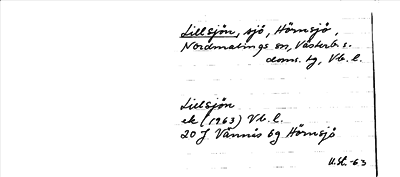 Lillsjön, sjö, Hörnsjö,
Nordmalings sn, Västerb. s.
doms. tg, Vb. l.
Lillsjön
ek (1963) Vb. l.
20 J Vännäs bg Hörnsjö
U.St. -63